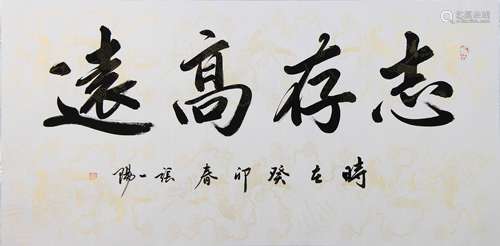 志存高遠
時在癸卯春 一陽